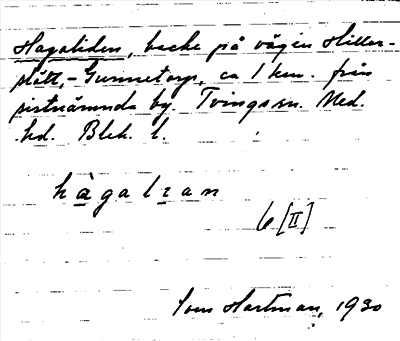 Hagaliden, backe på vägen Hiller-
slätt,-Gunnetorp, ca 1 km. från
sistnämnda by. Tvingsm. Med.
hd. Blek. l.
hàgalɩan
6 [II]
Tom Hartman, 1930